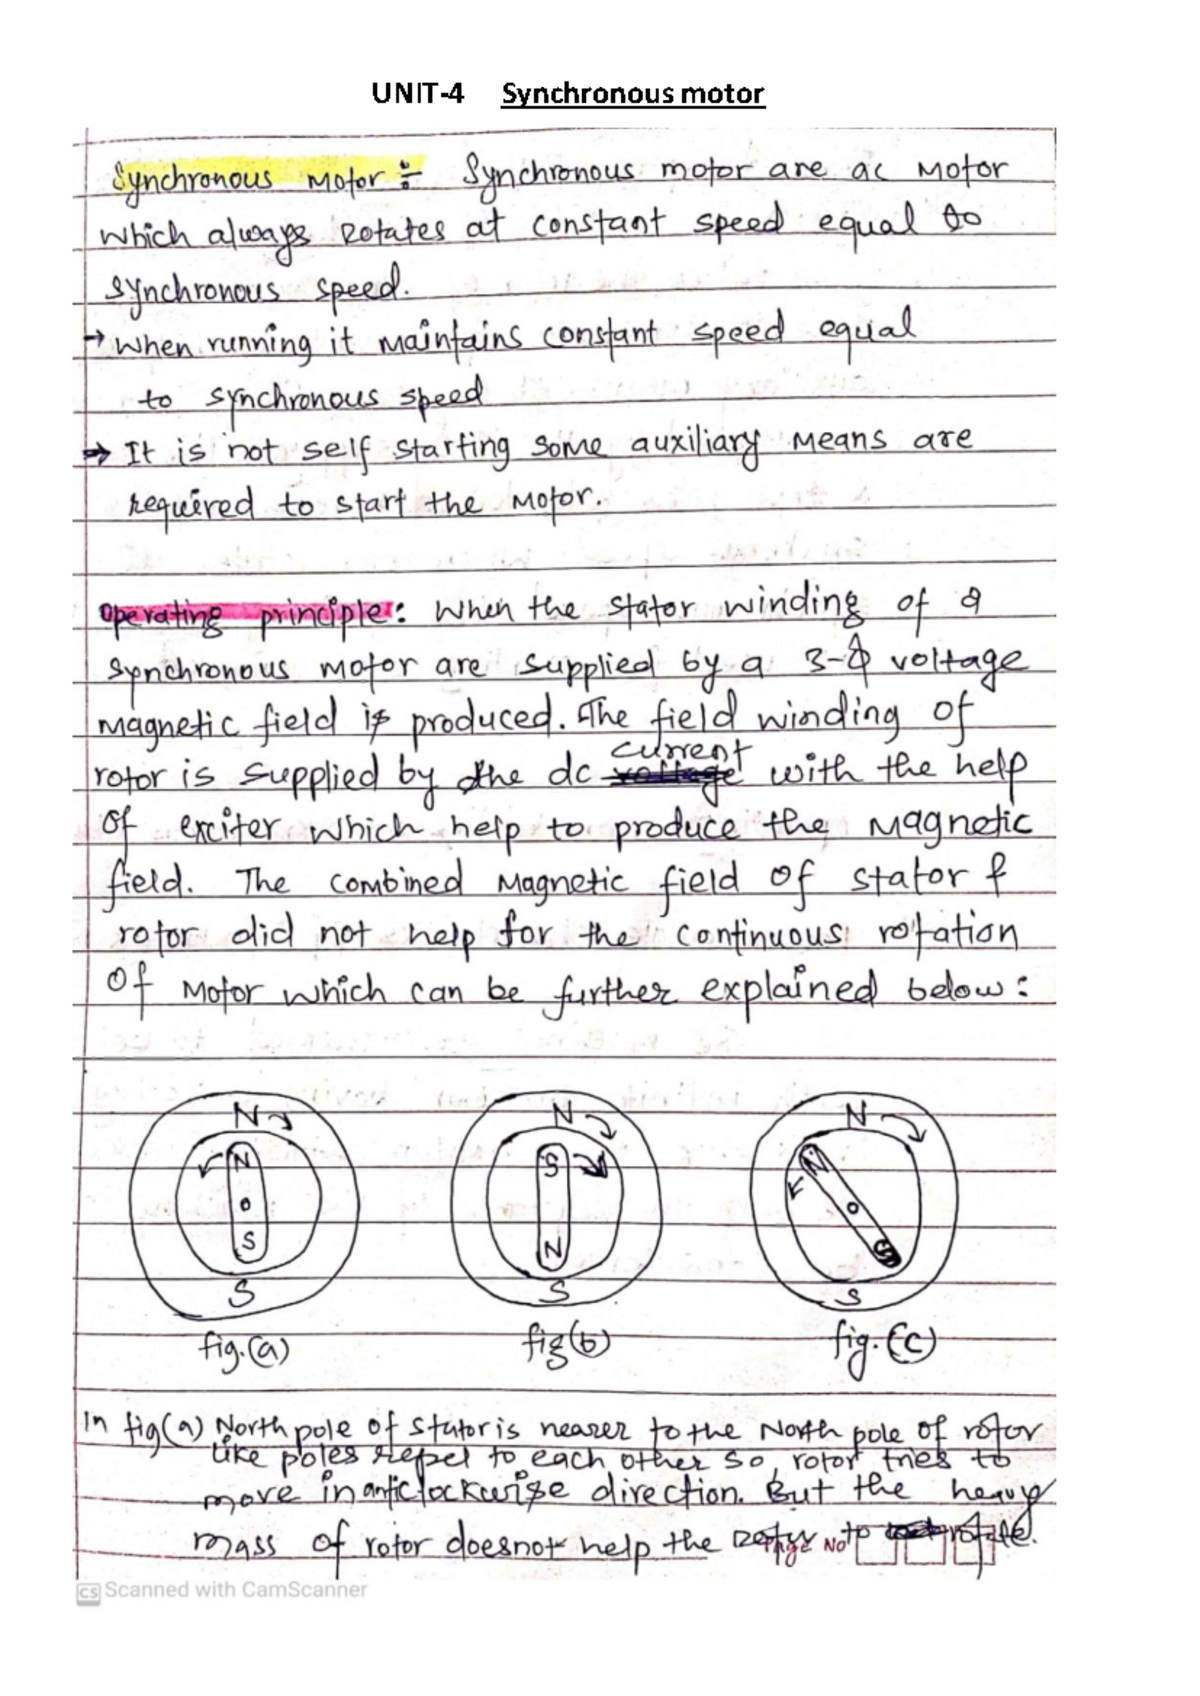 UNIT-4 Synchronous motor
Synchronous Motor ÷ Synchronous motor are ac Motor
which always Rotates at constant speed equal to
synchronous speed.
→ When running it Maintains constant speed equal
to synchronous speed
→ It is not self starting some auxiliary Means are
required to start the Motor.
Operating principle: When the stator winding of a
synchronous motor are supplied by a 3-Φ voltage
Magnetic field is produced. The field winding of
current
rotor is supplied by the dc voltage with the help
of exciter which help to produce the Magnetic
field. The combined Magnetic field of stator &
rotor did not help for the continuous rotation
Of Motor which can be further explained below:
N N N
N S N
S N S
S S S
fig.(a) fig(b) fig.(c)
In fig(a) North pole of stator is nearer to the North pole of rotor
like poles repel to each other so, rotor tries to
move in anticlockwise direction. But the heavy
mass of rotor doesnot help the to rotate.
Page No
CS Scanned with CamScanner